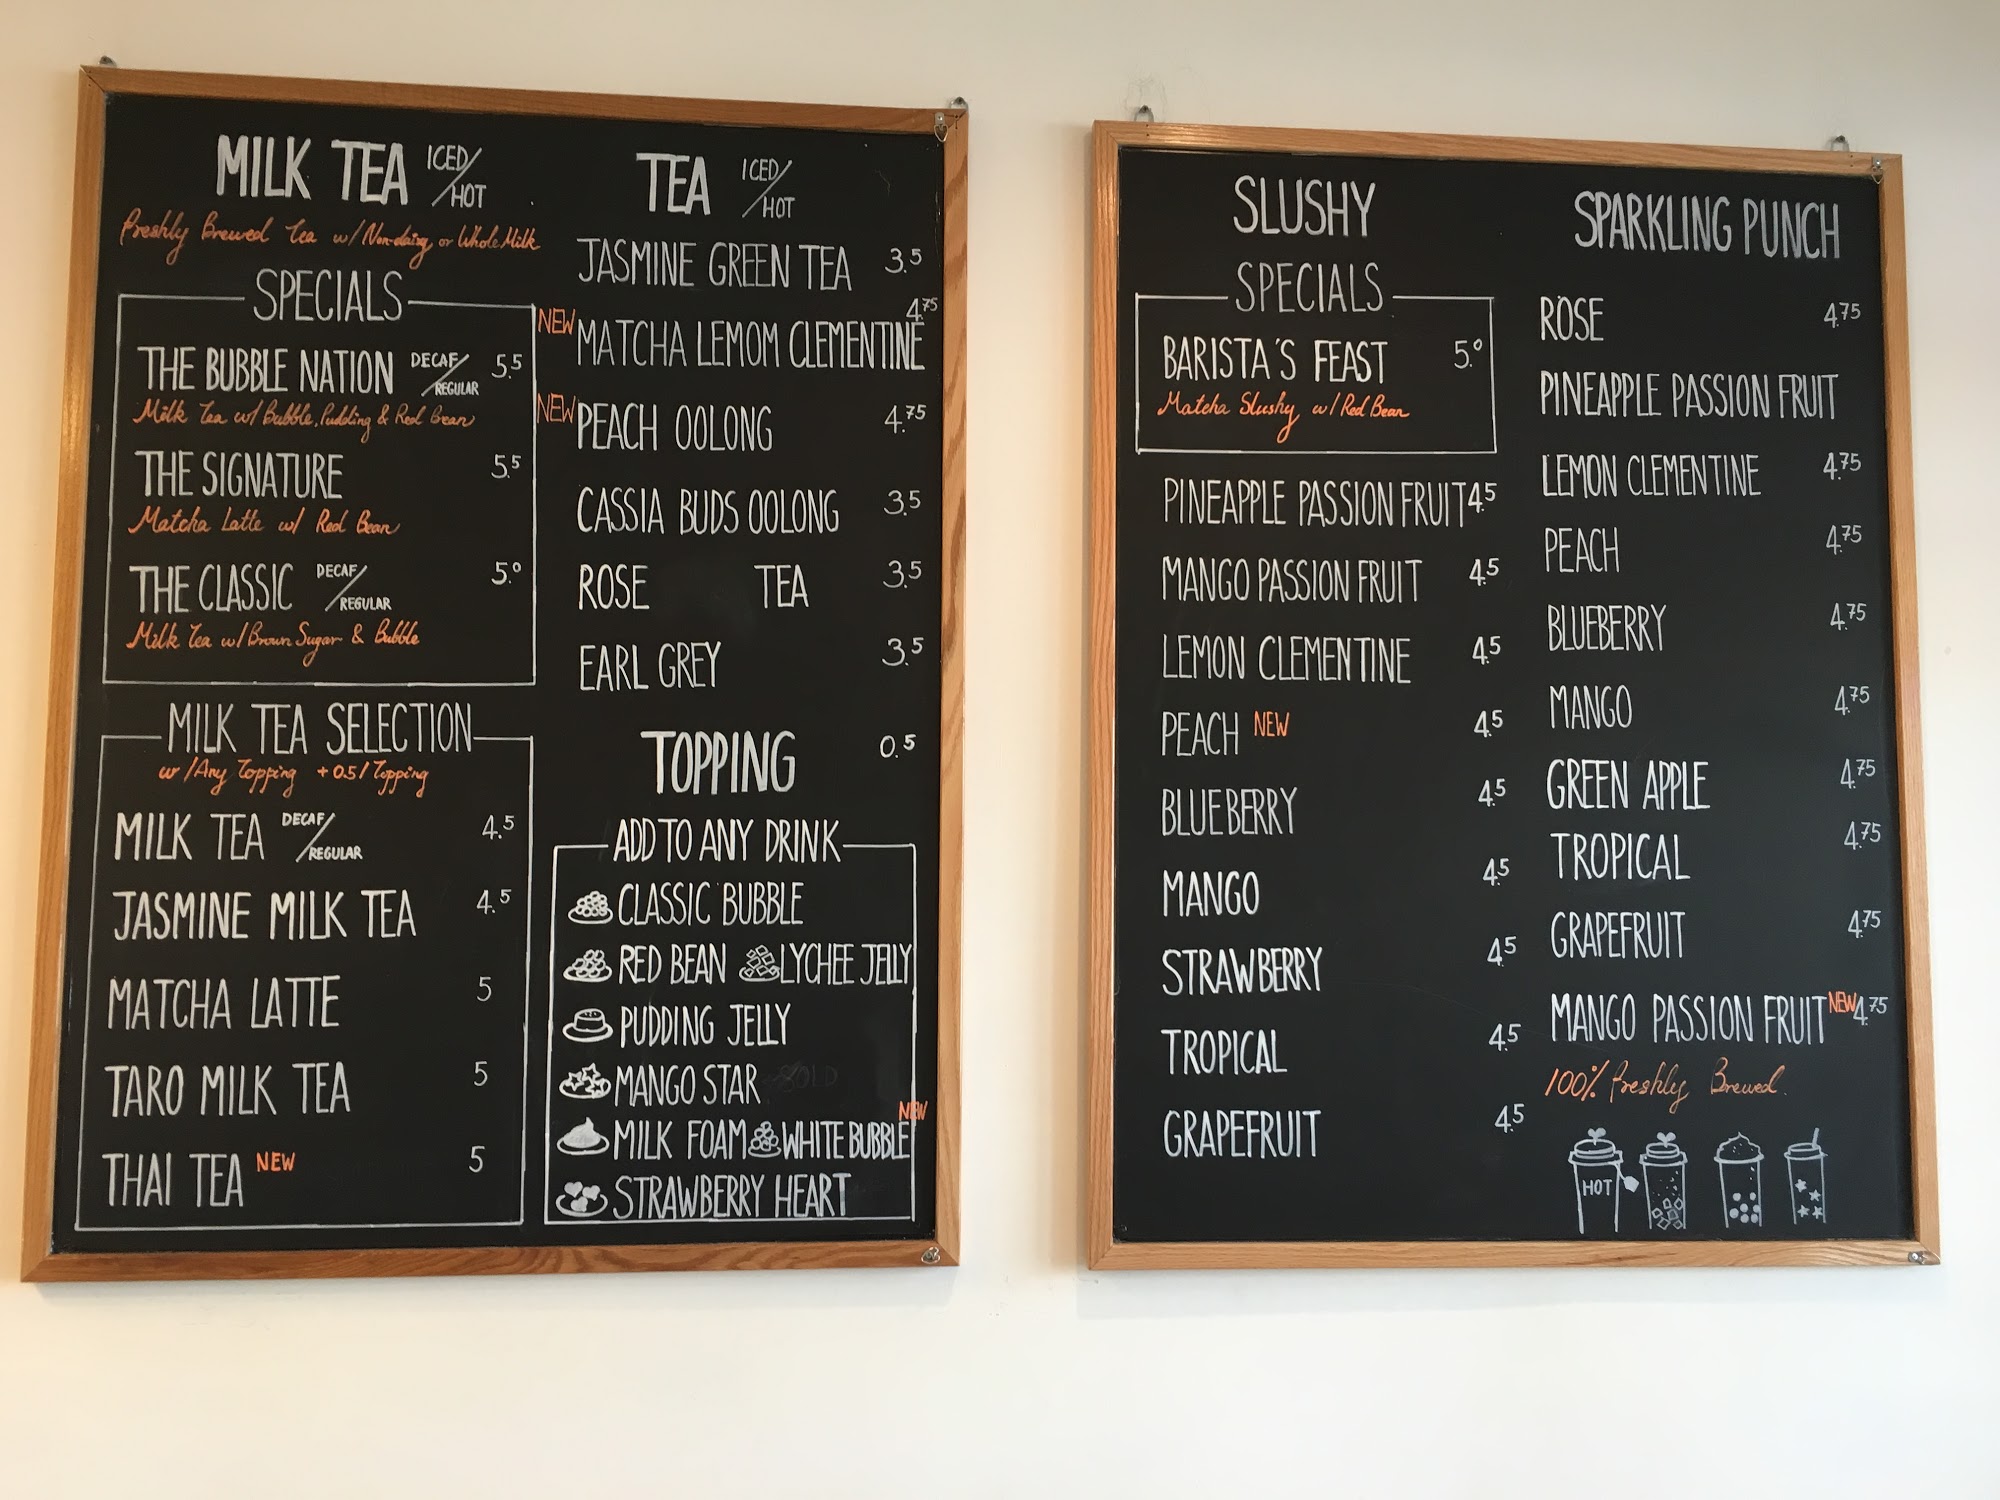 MILK TEA ICED/HOT
Freshly Brewed Tea w/ Non-dairy or Whole Milk
SPECIALS
THE BUBBLE NATION DECAF/REGULAR 5.5
Milk Tea w/ Bubble, Pudding & Red Bean
THE SIGNATURE 5.5
Matcha Latte w/ Red Bean
THE CLASSIC DECAF/REGULAR 5.0
Milk Tea w/ Brown Sugar & Bubble
MILK TEA SELECTION
w/Any Topping +0.5/Topping
MILK TEA DECAF/REGULAR 4.5
JASMINE MILK TEA 4.5
MATCHA LATTE 5
TARO MILK TEA 5
THAI TEA NEW 5
TEA ICED/HOT
JASMINE GREEN TEA 3.5
NEW MATCHA LEMOM CLEMENTINE 4.75
NEW PEACH OOLONG 4.75
CASSIA BUDS OOLONG 3.5
ROSE TEA 3.5
EARL GREY 3.5
TOPPING 0.5
ADD TO ANY DRINK
CLASSIC BUBBLE
RED BEAN LYCHEE JELLY
PUDDING JELLY
MANGO STAR SOLD
MILK FOAM WHITE BUBBLE NEW
STRAWBERRY HEART
SLUSHY
SPECIALS
BARISTA'S FEAST 5.0
Matcha Slushy w/ Red Bean
PINEAPPLE PASSION FRUIT 4.5
MANGO PASSION FRUIT 4.5
LEMON CLEMENTINE 4.5
PEACH NEW 4.5
BLUEBERRY 4.5
MANGO 4.5
STRAWBERRY 4.5
TROPICAL 4.5
GRAPEFRUIT 4.5
SPARKLING PUNCH
ROSE 4.75
PINEAPPLE PASSION FRUIT
LEMON CLEMENTINE 4.75
PEACH 4.75
BLUEBERRY 4.75
MANGO 4.75
GREEN APPLE 4.75
TROPICAL 4.75
GRAPEFRUIT 4.75
MANGO PASSION FRUIT NEW 4.75
100% Freshly Brewed.
HOT